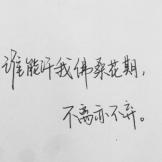 谁能许我佛桑花期，
不离亦不弃。